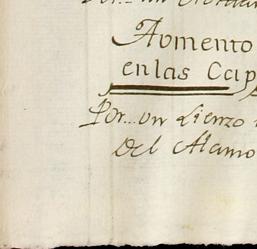 Por... un
Aumento
en las Cap
Por... un Lienzo
Del Alamo